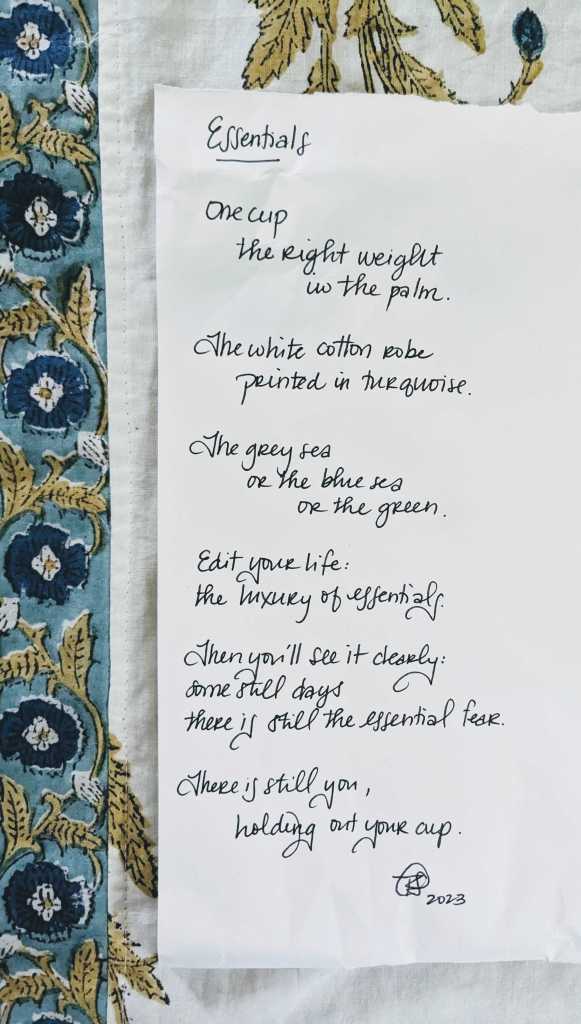 Essentials
One cup
the right weight
in the palm.
The white cotton robe
printed in turquoise.
The grey sea
or the blue sea
or the green.
Edit your life:
the luxury of essentials.
Then you'll see it clearly:
some still days
there is still the essential fear.
There is still you,
holding out your cup.
2023